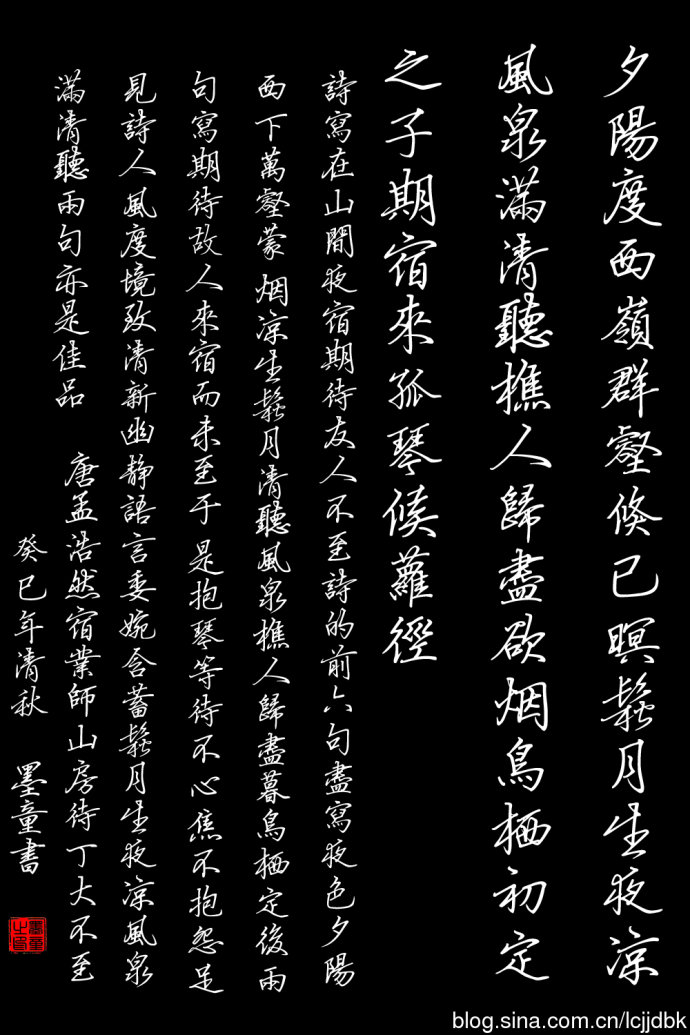 夕陽度西嶺群壑倏已暝鬆月生夜凉
風泉滿清聽樵人歸盡欲烟鳥栖初定
之子期宿來孤琴候蘿徑
詩寫在山間夜宿期待友人不至詩的前六句盡寫夜色夕陽
西下萬壑蒙烟凉生鬆月清聽風泉樵人歸盡暮鳥栖定後兩
句寫期待故人來宿而未至于是抱琴等待不心焦不抱怨足
見詩人風度境致清新幽静語言委婉含蓄鬆月生夜凉風泉
滿清聽兩句亦是佳品
唐孟浩然宿業師山房待丁大不至
癸巳年清秋 墨童書
墨童之印
blog.sina.com.cn/lcjjdbk